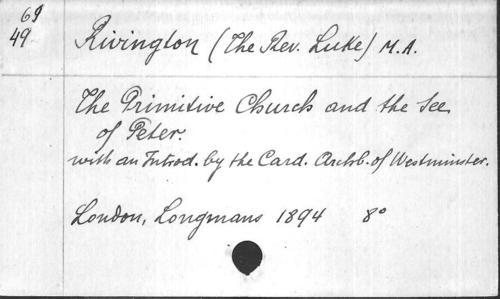 69
49
Rivington (The Rev. Luke) M.A.
The Primitive Church and the See
of Peter.
with an Introd. by the Card. Archb. of Westminster.
London, Longmans 1894 8°